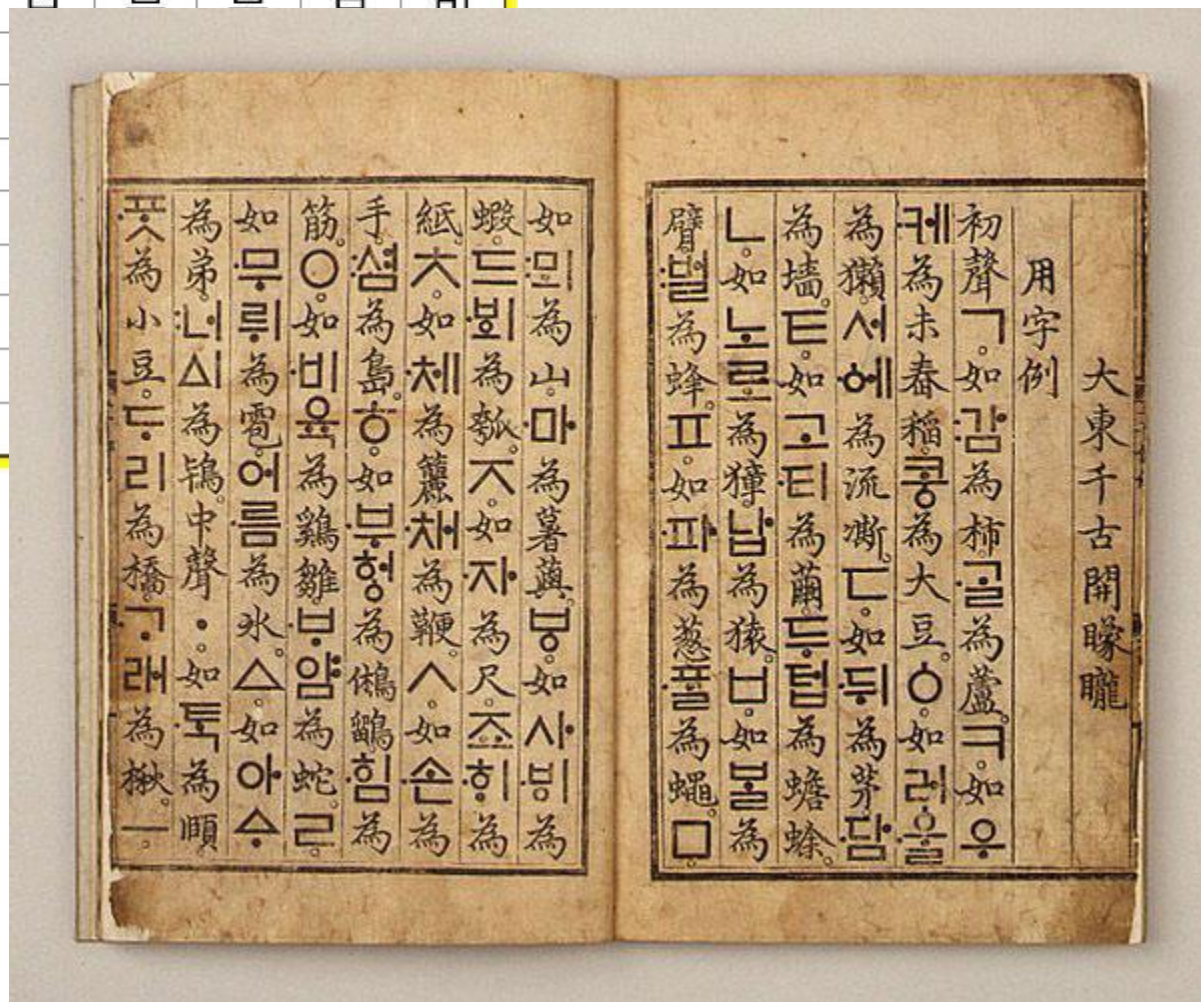 大東千古開矇矓
用字例
初聲ㄱ。如:감為柿。·ᄀᆞᆯ為蘆。ㅋ。如우
·케為未舂稻。콩為大豆。ㆁ。如러·울
為獺。서·에為流凘。ㄷ。如·뒤為茅。·담
為墻。ㅌ。如고·티為繭。두텁為蟾蜍。
ㄴ。如노로為獐。납為猿。ㅂ。如ᄇᆞᆯ為
臂。:벌為蜂。ㅍ。如·파為葱。·ᄑᆞᆯ為蠅。ㅁ
如:뫼為山。·마為薯藇。ㅸ。如사·ᄫᅵ為
蝦。드·ᄫᅴ為瓠。ㅈ。如·자為尺。죠·ᄒᆡ為
紙。ㅊ。如·체為籭。·채為鞭。ㅅ。如·손為
手。:셤為島。ㅎ。如·부헝為鵂鶹。·힘為
筋。ㅇ。如·비육為鷄雛。·ᄇᆞ얌為蛇。ㄹ。
如·무뤼為雹。어·름為氷。ㅿ。如아ᅀᆞ
為弟。:너ᅀᅵ為鴇。中聲ㆍ。如·ᄐᆞᆨ為頤
·ᄑᆞᆺ為小豆。ᄃᆞ리為橋。·ᄀᆞ래為楸。ㅡ